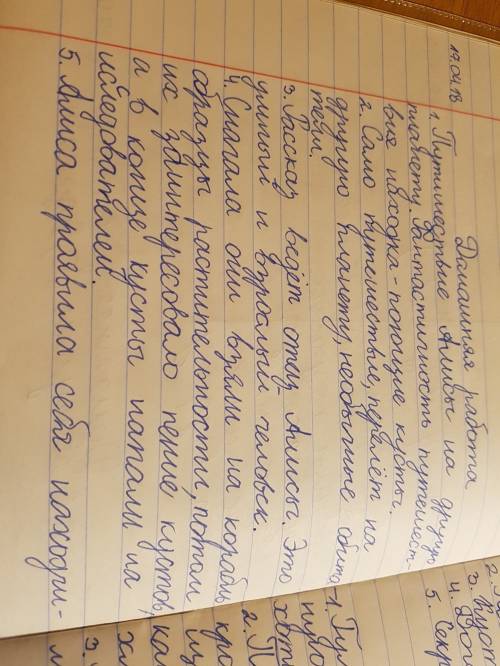 19.04.18
Домашняя работа
1. Путишествие Алисы на другую
планету. Фантастичность путешест-
вия находка - поющие кусты.
2. Само путешествие, перелёт на
другую планету, необычные обита-
тели.
3. Рассказ ведёт отец Алисы. Это
умный и взрослый человек.
4. Сначала они взяли на корабль
образцы растительности, потом
их заинтересовало пение кустов,
а в конце кусты напали на
иследователей.
5. Алиса проявила себя находчи-
2.
3.
4.
5. Секр
1.
2.
3.